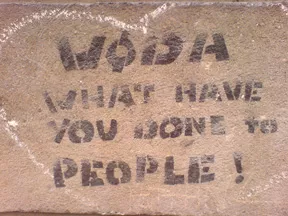 WODA
WHAT HAVE
YOU DONE TO
PEOPLE!